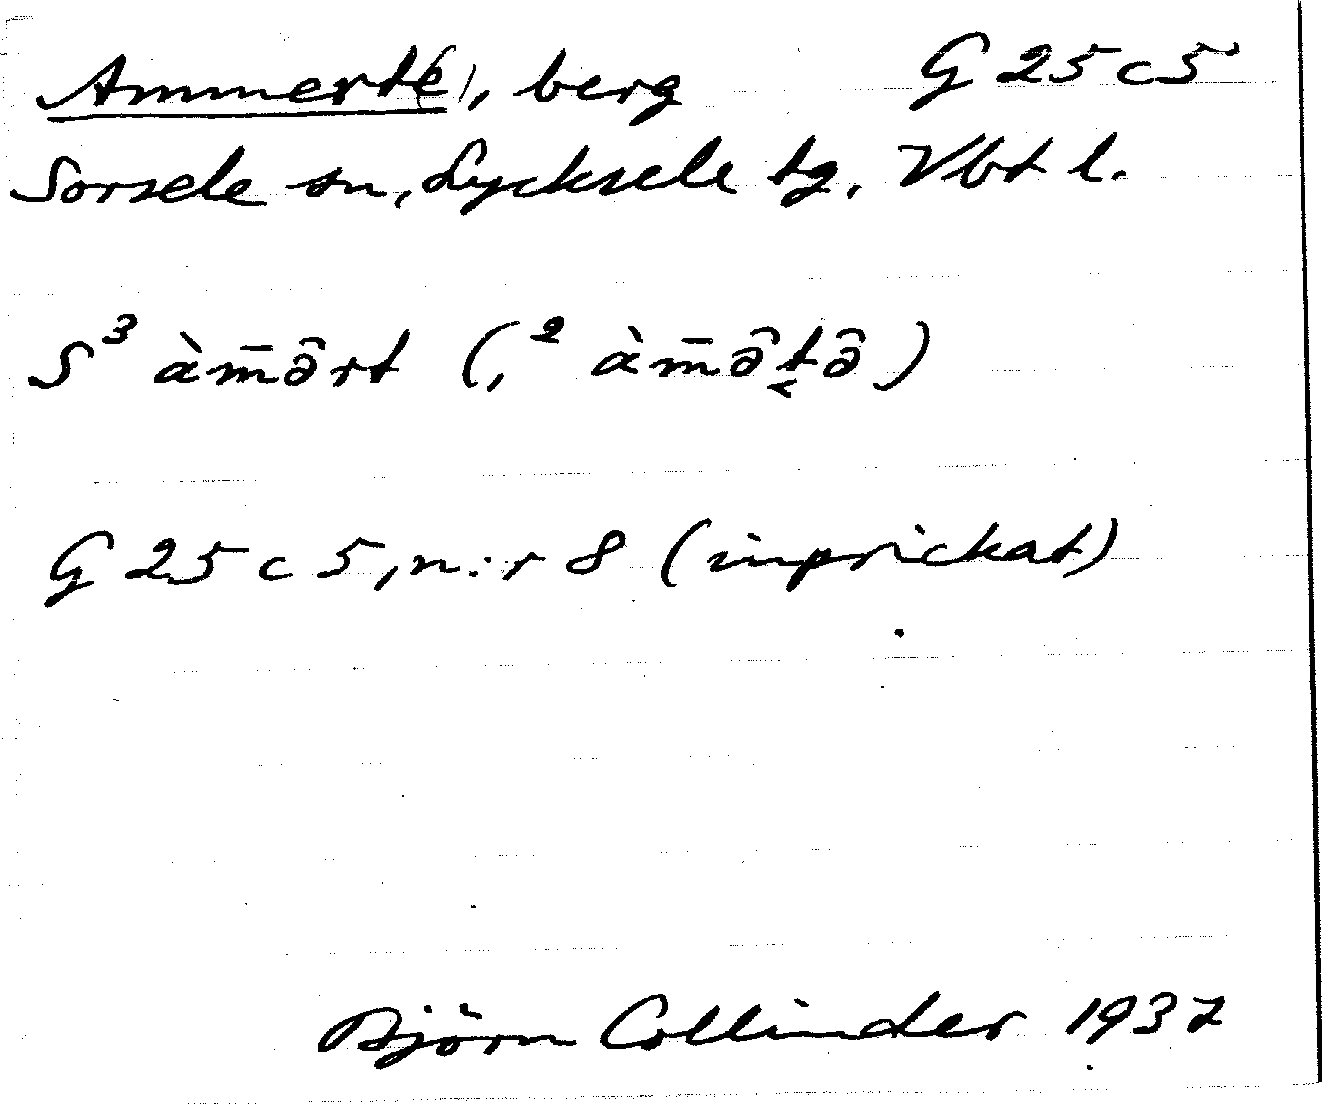 Ammert(e), berg G 25 c 5
Sorsele sn, Lycksele tg, Vbt l.
S ³ àm̄ə̂rt (, ² àm̄ə̂t̬ə̂)
G 25 c 5, n:r 8 (inprickat)
Björn Collinder 1937